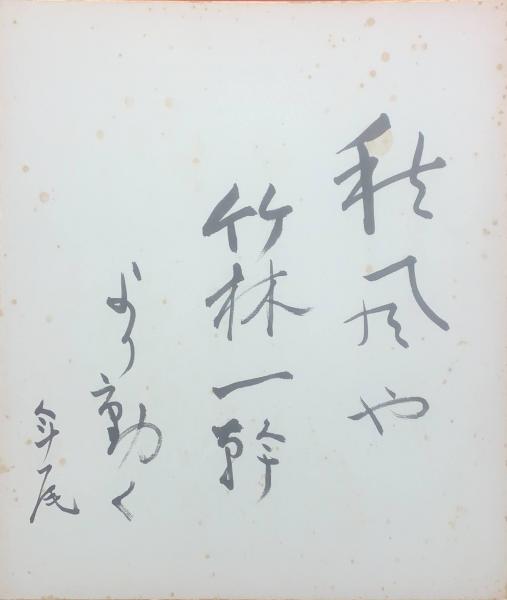 秋風や
竹林一幹
より動く
伞尾